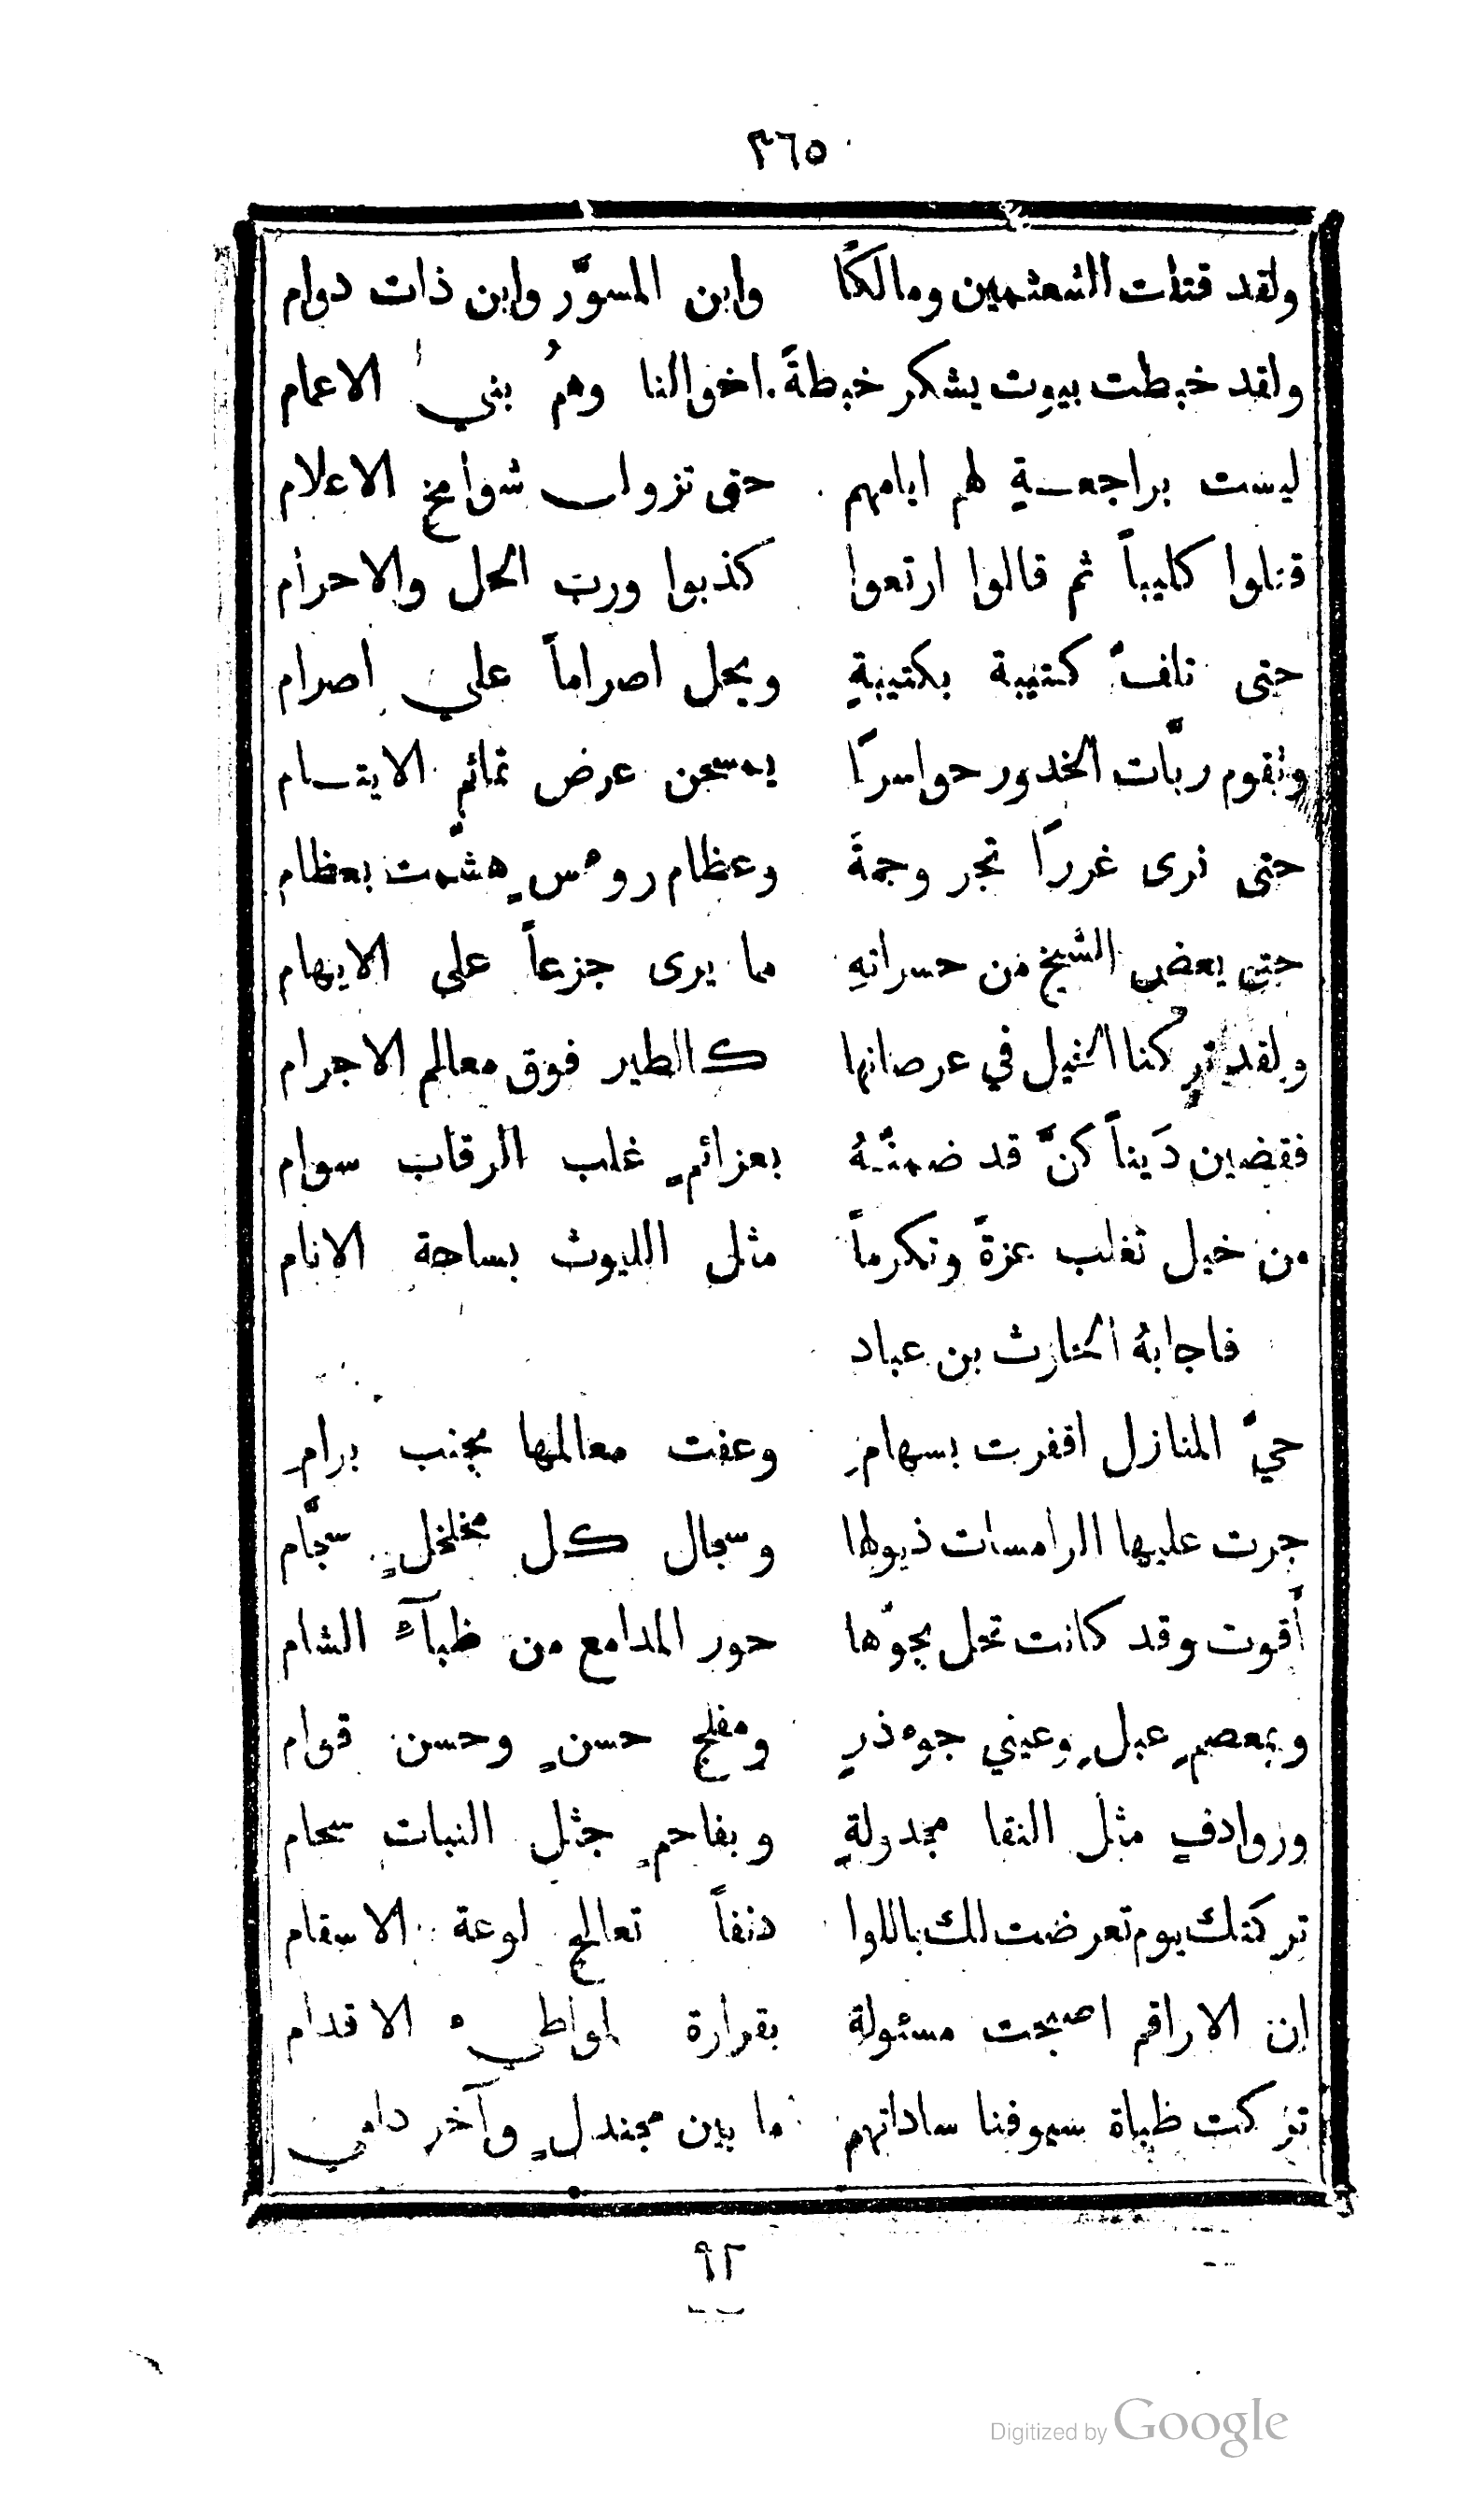 ٣٦٥
ولقد قتلت الشعثمين ومالكًا وابن المسوّر وابن ذات دوام
ولقد خبطت بيوت يشكر خبطةً اخوالنا وهمُ بني الاعمام
ليست براجعة لهم ايامهم حتى تزول شوامخ الاعلام
قتلوا كليباً ثم قالوا ارتعوا كذبوا ورب الحل والاحرام
حتى تلفّ كتيبة بكتيبةٍ ويحل اصراماً على اصرام
وتقوم ربّات الخدور حواسرًا يمسحن عرض تمائم الايتسام
حتى نرى غررًا تجر وجمةً وعظام روءسٍ هشّمت بعظام
حتى يعض الشيخ من حسراتهِ مما يرى جزعاً على الابهام
ولقد تركنا الخيل في عرصاتها كالطير فوق معالم الاجرام
فقضين دَيناً كنّ قد ضمنّهُ بعزائمٍ غلب الرقاب سوام
من خيل تغلب عزةً وتكرماً مثل الليوث بساحة الانام
فاجابهُ الحارث بن عباد
حيّ المنازل اقفرت بسهامِ وعفت معالمها بجنب برامِ
جرت عليها الرامسات ذيولها وسجال كل مخلخلٍ سجّام
أقوت وقد كانت تحل بجوّها حور المدامع من ظبآءِ الشام
وبمعصمٍ عبلٍ وعيني جوءذرٍ ومفلج حسنٍ وحسن قوام
وروادفٍ مثل النقا مجدولةٍ وبفاحمٍ جثل النبات سحام
تركتك يوم تعرضت لك باللوا دنفاً تعالج لوعة الاسقام
ان الاراقم اصبحت مسئولة بقرارة لمواطيء الاقدام
تركت ظباة سيوفنا ساداتهم ما بين مجندلٍ وآخر دامي
٩٢
Digitized by Google